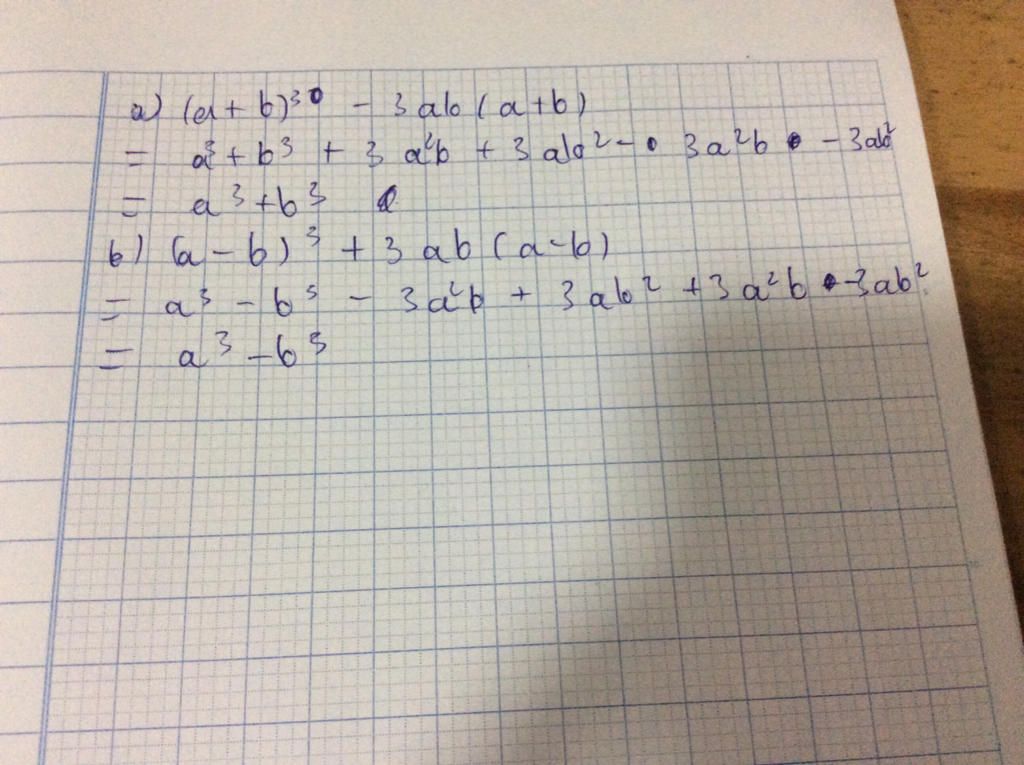 a) (a+b)³ - 3ab(a+b)
= a³ + b³ + 3a²b + 3ab² - 3a²b - 3ab²
= a³ + b³
b) (a-b)³ + 3ab(a-b)
= a³ - b³ - 3a²b + 3ab² + 3a²b - 3ab²
= a³ - b³